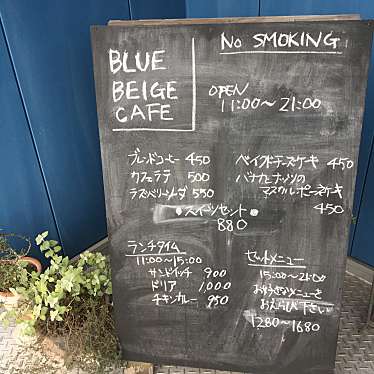 BLUE
BEIGE
CAFE
No SMOKING
OPEN
11:00〜21:00
ブレンドコーヒー 450
カフェラテ 500
ラズベリーソーダ 550
ベイクドチーズケキ 450
バナナとナッツの
マスカルポーネケキ
450
・スイーツセット・
880
ランチタイム
11:00〜15:00
サンドイッチ 900
ドリア 1,000
チキンカレー 950
セットメニュー
15:00〜21:00
お好きなメニューを
おえらび下さい
1280〜1680